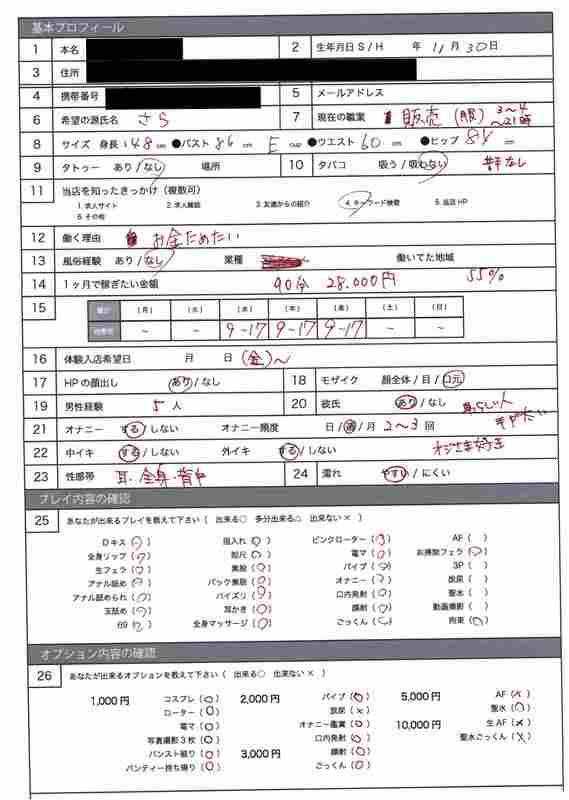 基本プロフィール
1 本名 2 生年月日 S / H 年 11 月 30 日
3 住所
4 携帯番号 5 メールアドレス
6 希望の源氏名 さら 7 現在の職業 販売 (服) 3~4 ~21時
8 サイズ 身長 148 cm ●バスト 86 cm E cup ●ウエスト 60 cm ●ヒップ 84 cm
9 タトゥー あり / なし 場所 10 タバコ 吸う / 吸わない なし
11 当店を知ったきっかけ(複数可)
1. 求人サイト 2. 求人雑誌 3. 友達からの紹介 4. キーワード検索 5. 当店HP
6. その他
12 働く理由 お金ためたい
13 風俗経験 あり / なし 業種 働いてた地域
14 1ヶ月で稼ぎたい金額 90分 28.000円 55%
15 曜日 (月) (火) (水) (木) (金) (土) (日)
~ ~ 9~17 9~17 9~17 ~ ~
16 体験入店希望日 月 日 (金)~
17 HPの顔出し あり / なし 18 モザイク 顔全体 / 目 / 口元
19 男性経験 5 人 20 彼氏 あり / なし
21 オナニー する / しない オナニー頻度 日 / 週 / 月 2~3 回
22 中イキ する / しない 外イキ する / しない オジさま好き
23 性感帯 耳・全身・背中 24 濡れ やすい / にくい
プレイ内容の確認
25 あなたが出来るプレイを教えて下さい ( 出来る○ 多分出来る△ 出来ない× )
Dキス (○) 指入れ (○) ピンクローター (○) AF ( )
全身リップ (○) 即尺 (○) 電マ (○) お掃除フェラ (○)
生フェラ (○) 素股 (○) バイブ (○) 3P ( )
アナル舐め (○) バック素股 (○) オナニー (○) 放尿 ( )
アナル舐められ (○) パイズリ (○) 口内発射 (○) 聖水 ( )
玉舐め (○) 耳かき (○) 顔射 (○) 動画撮影 ( )
69 (○) 全身マッサージ (○) ごっくん (○) 拘束 (○)
オプション内容の確認
26 あなたが出来るオプションを教えて下さい ( 出来る○ 出来ない× )
1,000円 コスプレ (○) 2,000円 バイブ (○) 5,000円 AF (×)
ローター (○) 放尿 (×) 聖水 (○)
電マ (○) オナニー鑑賞 (○) 10,000円 生AF (×)
写真撮影3枚 (○) 口内発射 (○) 聖水ごっくん (×)
パンスト破り (○) 3,000円 顔射 (○)
パンティー持ち帰り (○) ごっくん (○)